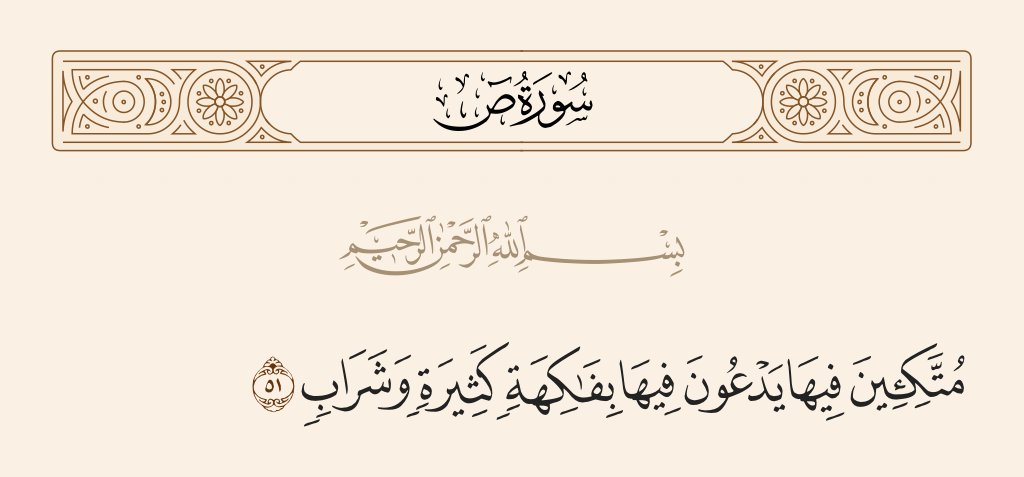 سُورَةُ صٓ
بِسْمِ ٱللَّهِ ٱلرَّحْمَٰنِ ٱلرَّحِيمِ
مُتَّكِـِٔينَ فِيهَا يَدْعُونَ فِيهَا بِفَٰكِهَةٍ كَثِيرَةٍ وَشَرَابٍ ٥١